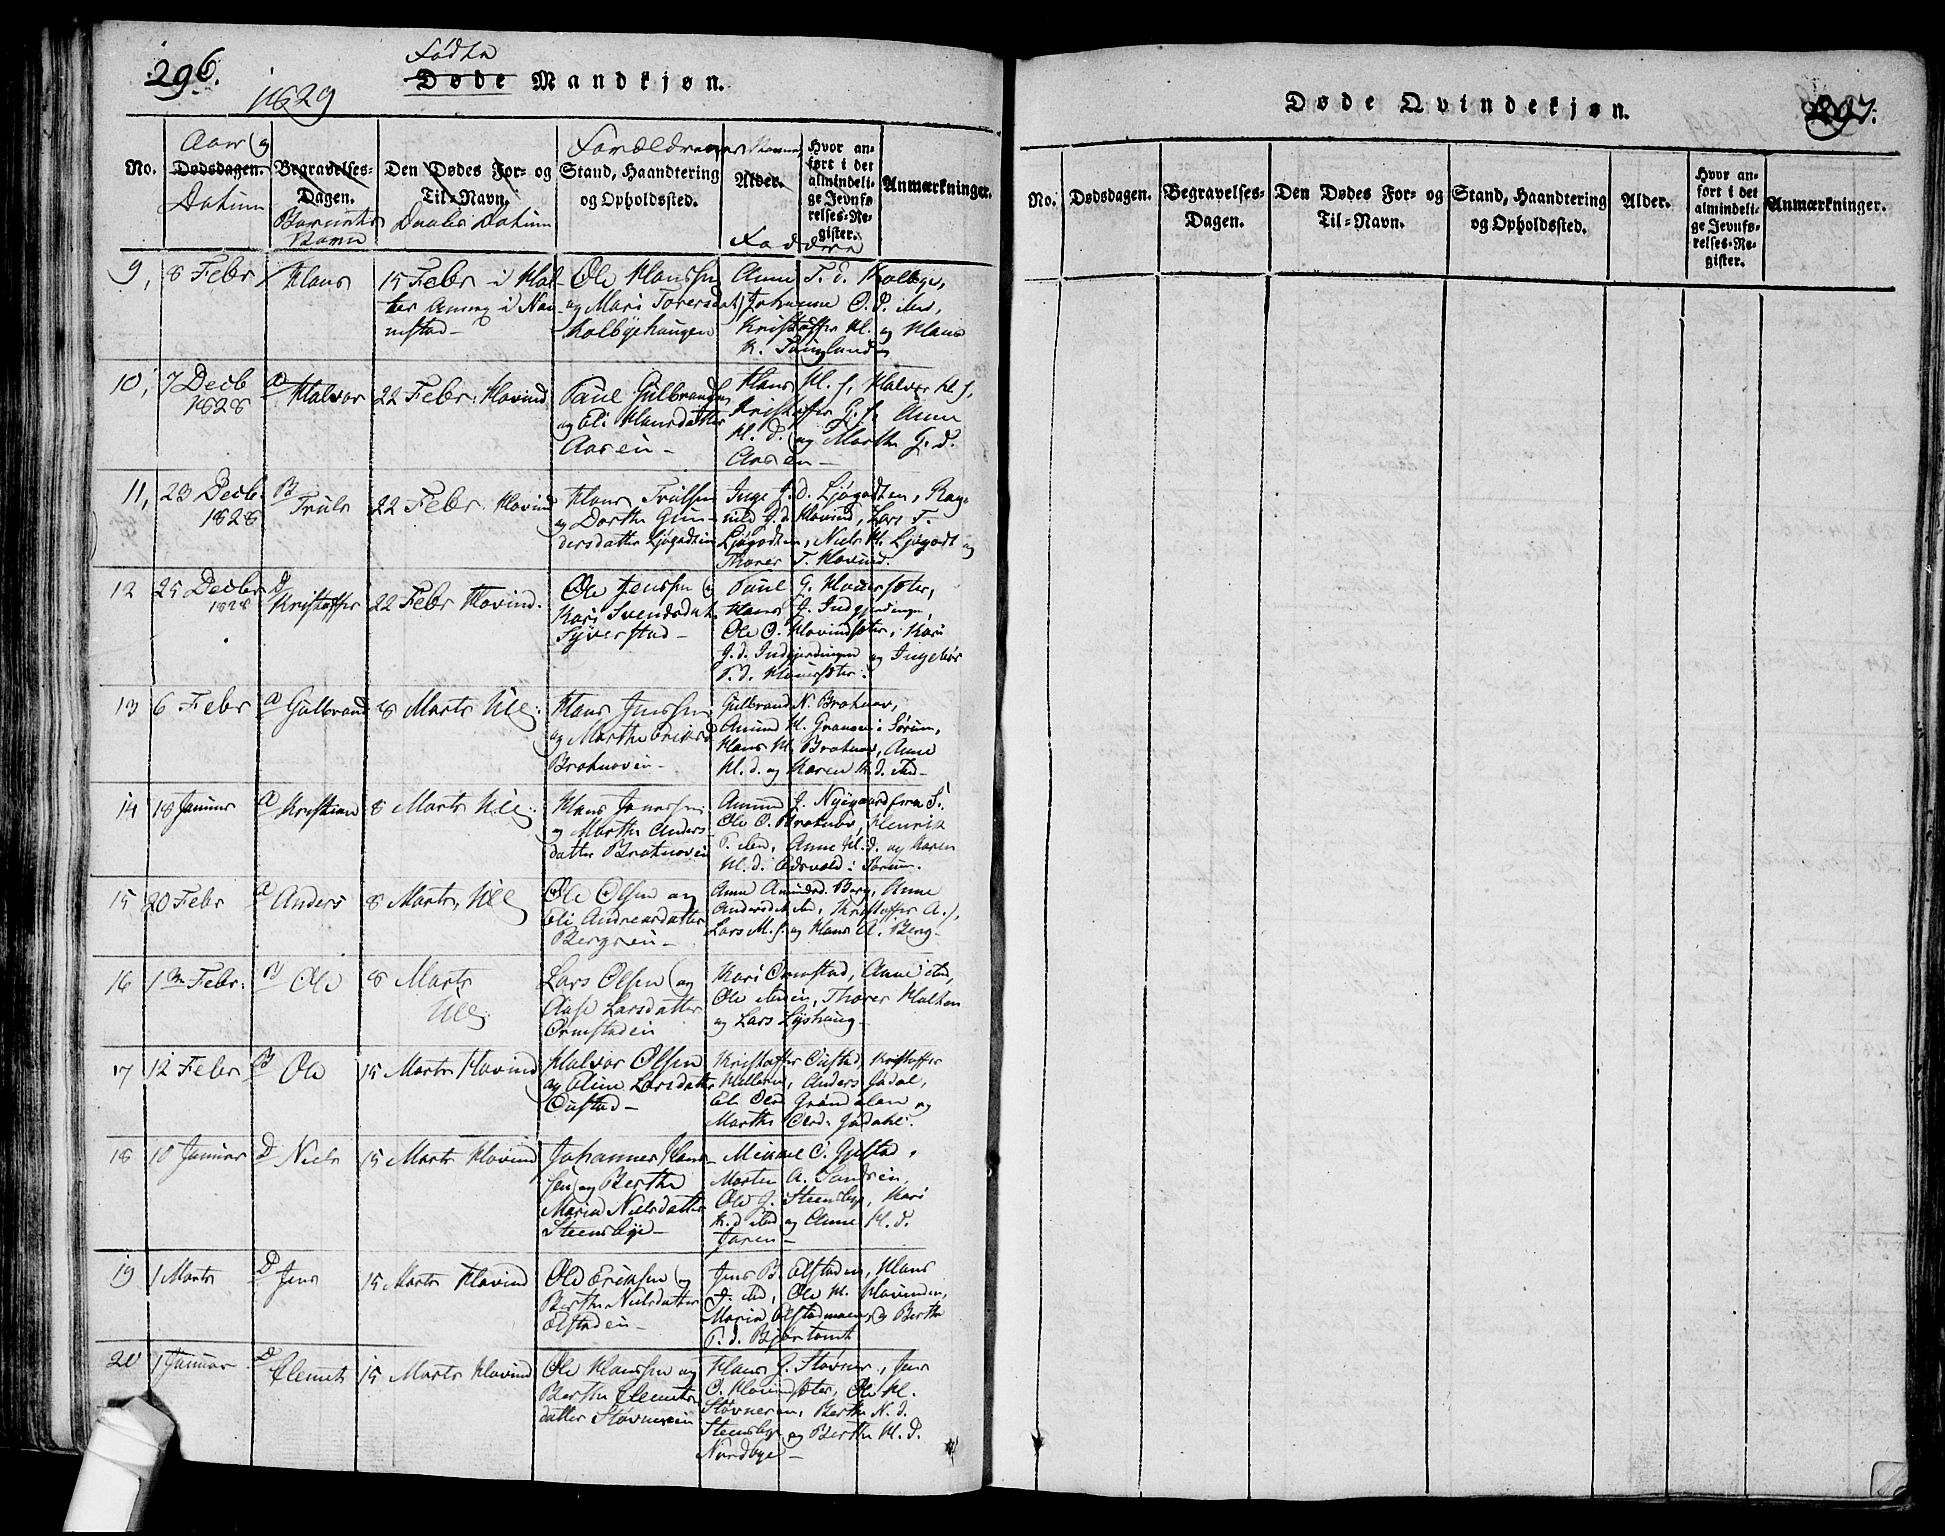 296.
1829
Fødte
Døde Mandkjøn.
No.
Aar og
Dødsdagen.
Datum
Begravelses-
Dagen.
Barnets
Navne
Den Dødes For- og
Til-Navn.
Daabs Datum
Forældrenes Navne
Stand, Haandtering
og Opholdssted.
Alder.
Faddere
Hvor an-
ført i det
almindeli-
ge Jevnfø-
relses-Re-
gister.
Anmærkninger.
9, 8 Febr Hans
15 Febr i
Ole Hanssen
og Mari Torersdat
Kolbyehaugen
Anne T. E. Kolbye,
Johanne O. D. ibd,
Kristoffer H. og Hans
10, 7 Decb
1828
a Halvor
22 Febr. Hovind
Paul Gulbrands
og Eli Hansdatter
Aasen-
Hans H. s, Halvor H. s,
Kristoffer G. s, Anne
H. d. og Marthe G. d.
Aasen-
11, 23 Decb.
1828
B Truls
22 Febr. Hovind
Hans Trulsen
og Dorthe Gun-
dersdatter Ljøgodt
Inge J. d. Ljøgodten, Rag-
nild J. d. Hovind, Lars T.
Ljøgodten, Niels H. Ljøgodt og
Thorer T. Hovind.
12 25 Decbr
1828
D Kristoffer
22 Febr Hovind.
Ole Jenssen og
Kari Svendsdat.
Syverstad-
Paul G. Hoversæter,
Hans J. Indgjerdingen,
Ole O. Hovindsæter, Kari
J. d. Indgjerdingen og Ingebør
P. d. Hoversæter.
13 6 Febr a Gulbrand
8 Marts Ull.
Hans Jenssen
og Marthe Eriksd
Brotnoven-
Gulbrand N. Brotnov,
Amund H. Granoe i Sørum,
Hans H. Brotnov, Anne
H. d. og Karen H. d. ibd-
14 18 Januar a Kristian
8 Marts Ull.
Hans Jenssen
og Marthe Anders
datter Brotnoven
Amund J. Nygaard fra S.
Ole O. Brotnov, Henrik
P. ibd, Anne H. d. og Karen
H. d. Edsvold i Sørum.
15 20 Febr a Anders
8 Marts, Ull
Ole Olsen og
Eli Andreasdatter
Bergsen-
Anne Amundsd. Berg, Anne
Andersd ibd, Kristoffer A. s,
Lars M. s. og Hans A. Berg-
16 1 Febr. B Ole
8 Marts
Ull
Lars Olsen og
Aase Larsdatter
Ormstaden
Kari Ormstad, Anne ibd,
Ole ibden, Thorer Holten
og Lars Lyshaug-
17 12 Febr B Ole
15 Marts Hovind
Halvor Olsen
og Eline Larsdatter
Oustad-
Kristoffer Oustad, Kristoffer
Anders Jødal,
Eli Olsd Grøndalen og
Marthe Olsd. Jødahl.
18 10 Januar D Niels
15 Marts Hovind
Johannes Hans-
sen og Berthe
Maria Nielsdatter
Steensbye-
Mikkel C. Gjestad,
Morten A. Sandsen,
Ole J. Steensbye, Kari
K. d ibd og Anne H. d.
Jaren-
19 1 Marts D Jens
15 Marts Hovind
Ole Eriksen og
Berthe Nielsdatter
Olstaden-
Jens B. Olstaden, Hans
J. ibd, Ole H. Hovinden,
Maria Olstadmoen og Berthe
P. d. Bjørtomt
20 1 Januar D Clemet
15 Marts Hovind
Ole Hanssen og
Berthe Clemets
datter Støvneren
Hans G. Støvner, Jens
O. Hovindsæter, Ole H.
Støvneren, Berthe N. d.
Steensbye og Berthe H. d.
Nordbye-
Døde Qvindekjøn.
297.
No.
Dødsdagen.
Begravelses-
Dagen.
Den Dødes For- og
Til-Navn.
Stand, Haandtering
og Opholdssted.
Alder.
Hvor an-
ført i det
almindeli-
ge Jevnfø-
relses-Re-
gister.
Anmærkninger.